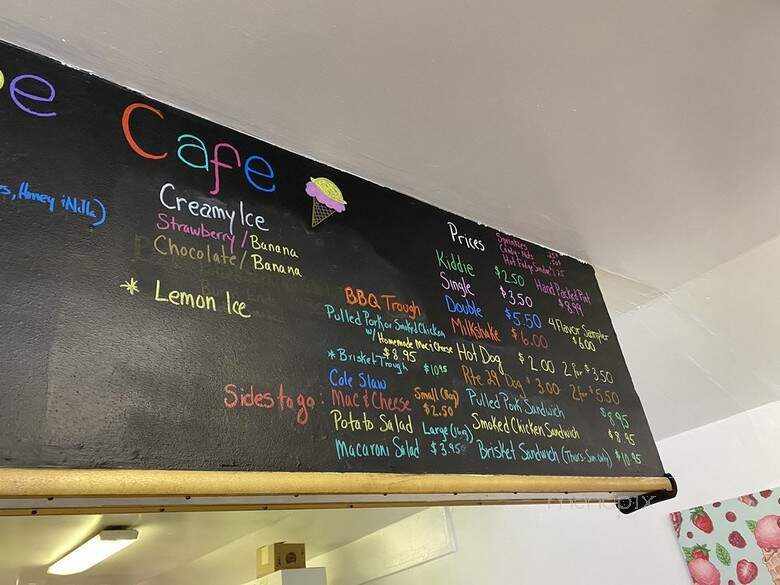 e Cafe
es, Honey iNilla)
Creamy Ice
Strawberry / Banana
Chocolate / Banana
* Lemon Ice
BBQ Trough
Pulled Pork or Smoked Chicken
w/ Homemade Mac & Cheese
$8.95
* Brisket Trough $10.95
Sides to go:
Cole Slaw
Mac & Cheese
Potato Salad
Macaroni Salad
Small (8oz)
$2.50
Large (16oz)
$3.95
Prices
Sprinkles .25
Kiddie $2.50
Single $3.50
Double $5.50
Milkshake $6.00
Hand Packed Pint
$8.99
4 Flavor Sampler
$6.00
Hot Dog $2.00 2 for $3.50
Rite 29 Dog $3.00 2 for $5.50
Pulled Pork Sandwich $8.95
Smoked Chicken Sandwich $8.95
Brisket Sandwich (Thurs-Sun only) $10.95
menupix